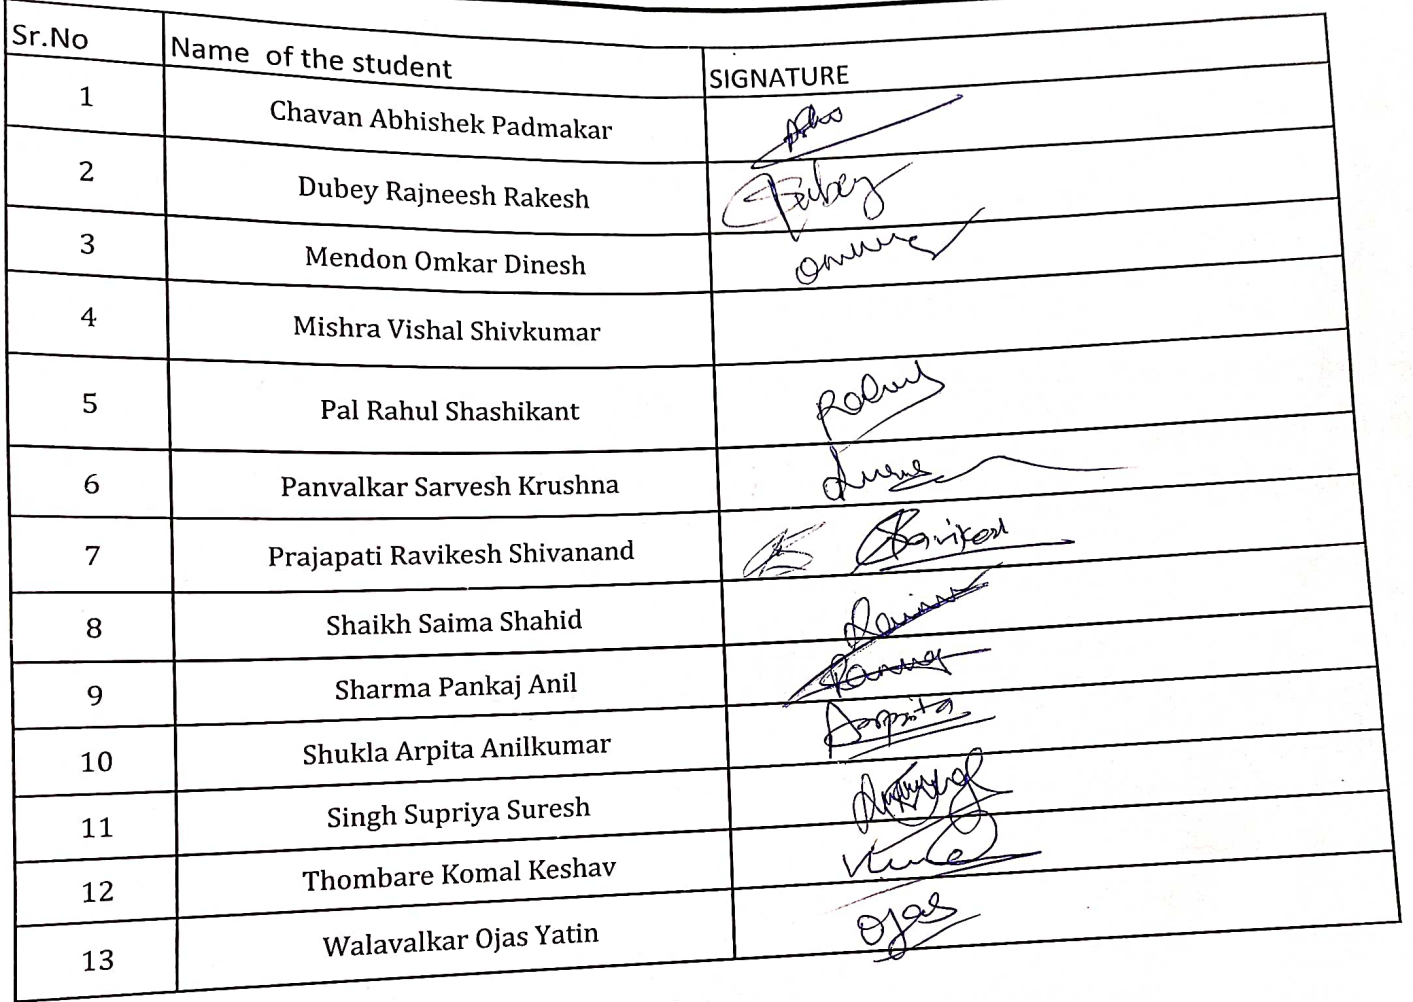 Sr.No Name of the student SIGNATURE
1 Chavan Abhishek Padmakar
2 Dubey Rajneesh Rakesh Dubey
3 Mendon Omkar Dinesh
4 Mishra Vishal Shivkumar
5 Pal Rahul Shashikant Rahul
6 Panvalkar Sarvesh Krushna
7 Prajapati Ravikesh Shivanand Ravikesh
8 Shaikh Saima Shahid
9 Sharma Pankaj Anil
10 Shukla Arpita Anilkumar Aarpita
11 Singh Supriya Suresh
12 Thombare Komal Keshav
13 Walavalkar Ojas Yatin Ojas